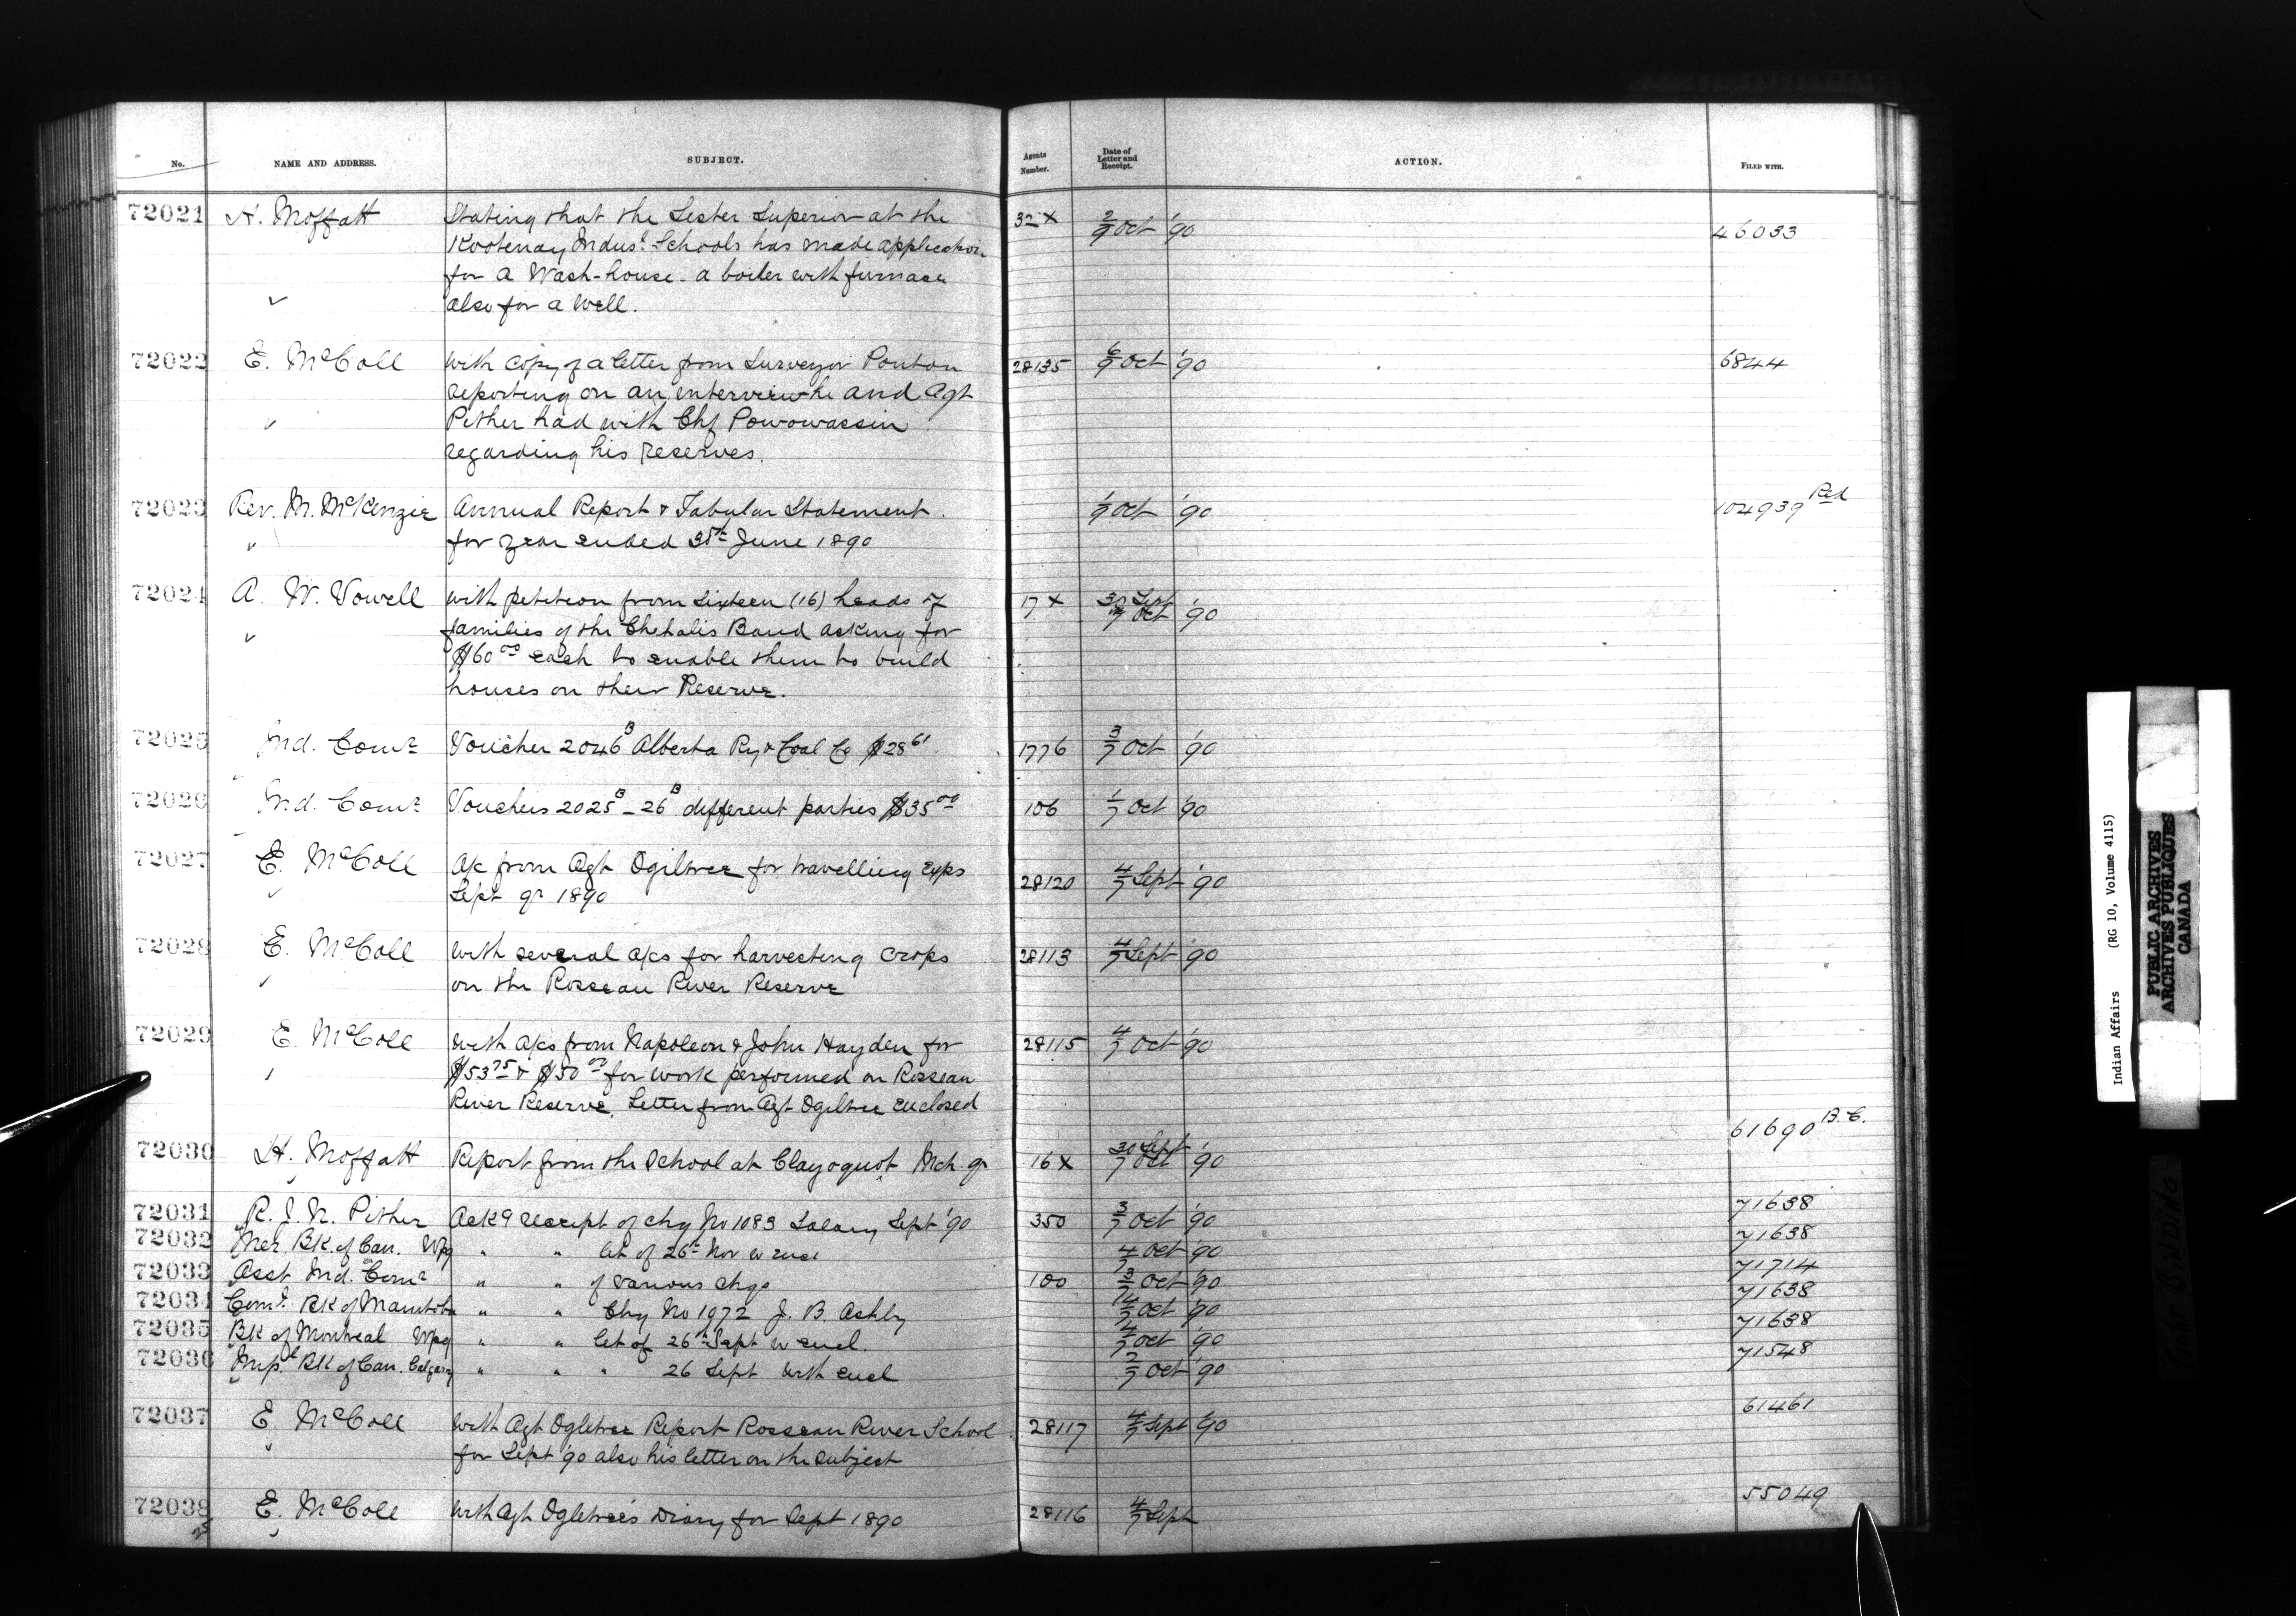 No. NAME AND ADDRESS. SUBJECT. Agents Number. Date of Letter and Receipt. ACTION. FILED WITH.
72021 H. Moffatt Stating that the Sester Superior at the 32 x 2/9 Oct '90 46033
Kootenay Indusl. Schools has made application
for a Wash-house. a boiler with furnace
also for a well.
72022 E. McColl with copy of a letter from Surveyor Ponton 28135 6/9 Oct '90 6844
reporting on an interview he and Agt
Pither had with Chf Powowassin
regarding his reserves.
72023 Rev. M. McKenzie Annual Report & Tabular Statement. 1/9 Oct '90 104939 Red
for year ended 30th June 1890
72024 A. W. Vowell with petition from sixteen (16) heads of 17 x 30 Sept 9 Oct '90
families of the Chehalis Band asking for
$160 00 each to enable them to build
houses on their Reserve.
72025 Ind. Comr Voucher 2046 B Alberta Ry & Coal Co $28 61 1776 3/7 Oct '90
72026 Ind. Comr Vouchers 2025 B - 26 B different parties $35 00 106 1/7 Oct '90
72027 E. McColl A/c from Agt Ogiltree for travelling exps 28120 4/7 Sept '90
Sept qr 1890
72028 E. McColl with several a/cs for harvesting crops 28113 4/7 Sept '90
on the Rosseau River Reserve
72029 E. McColl with a/cs from Napoleon & John Hayden for 28115 4/7 Oct '90
$53 75 & $50 00 for work performed on Rosseau
River Reserve. Letter from Agt Ogiltree enclosed
72030 H. Moffatt Report from the School at Clayoquot Mch. qr 16 x 30 Sept 7 Oct '90 61690 B.C.
72031 R. J. N. Pither Ackg receipt of chq No 1083 Salary Sept '90 350 3/7 Oct '90 71638
72032 Mer. Bk. of Can. Wpg " " let of 26th Nov w encl 4/7 Oct '90 71638
72033 Asst Ind. Comr " " of various chqs 100 3/7 Oct '90 71714
72034 Coml. Bk of Manitoba " " Chq No 1072 J. B. Ashby 4/7 Oct '90 71638
72035 Bk of Montreal Wpg " " let of 26th Sept w encl. 4/7 Oct '90 71638
72036 Impl Bk of Can. Calgary " " " 26 Sept with encl 2/7 Oct '90 71548
72037 E. McColl with Agt Ogletree Report Rosseau River School 28117 4/7 Sept '90 61461
for Sept '90 also his letter on the subject
72038 E. McColl with Agt Ogletree's Diary for Sept 1890 28116 4/7 Sept 55049
Indian Affairs (RG 10, Volume 4115)
PUBLIC ARCHIVES
ARCHIVES PUBLIQUES
CANADA